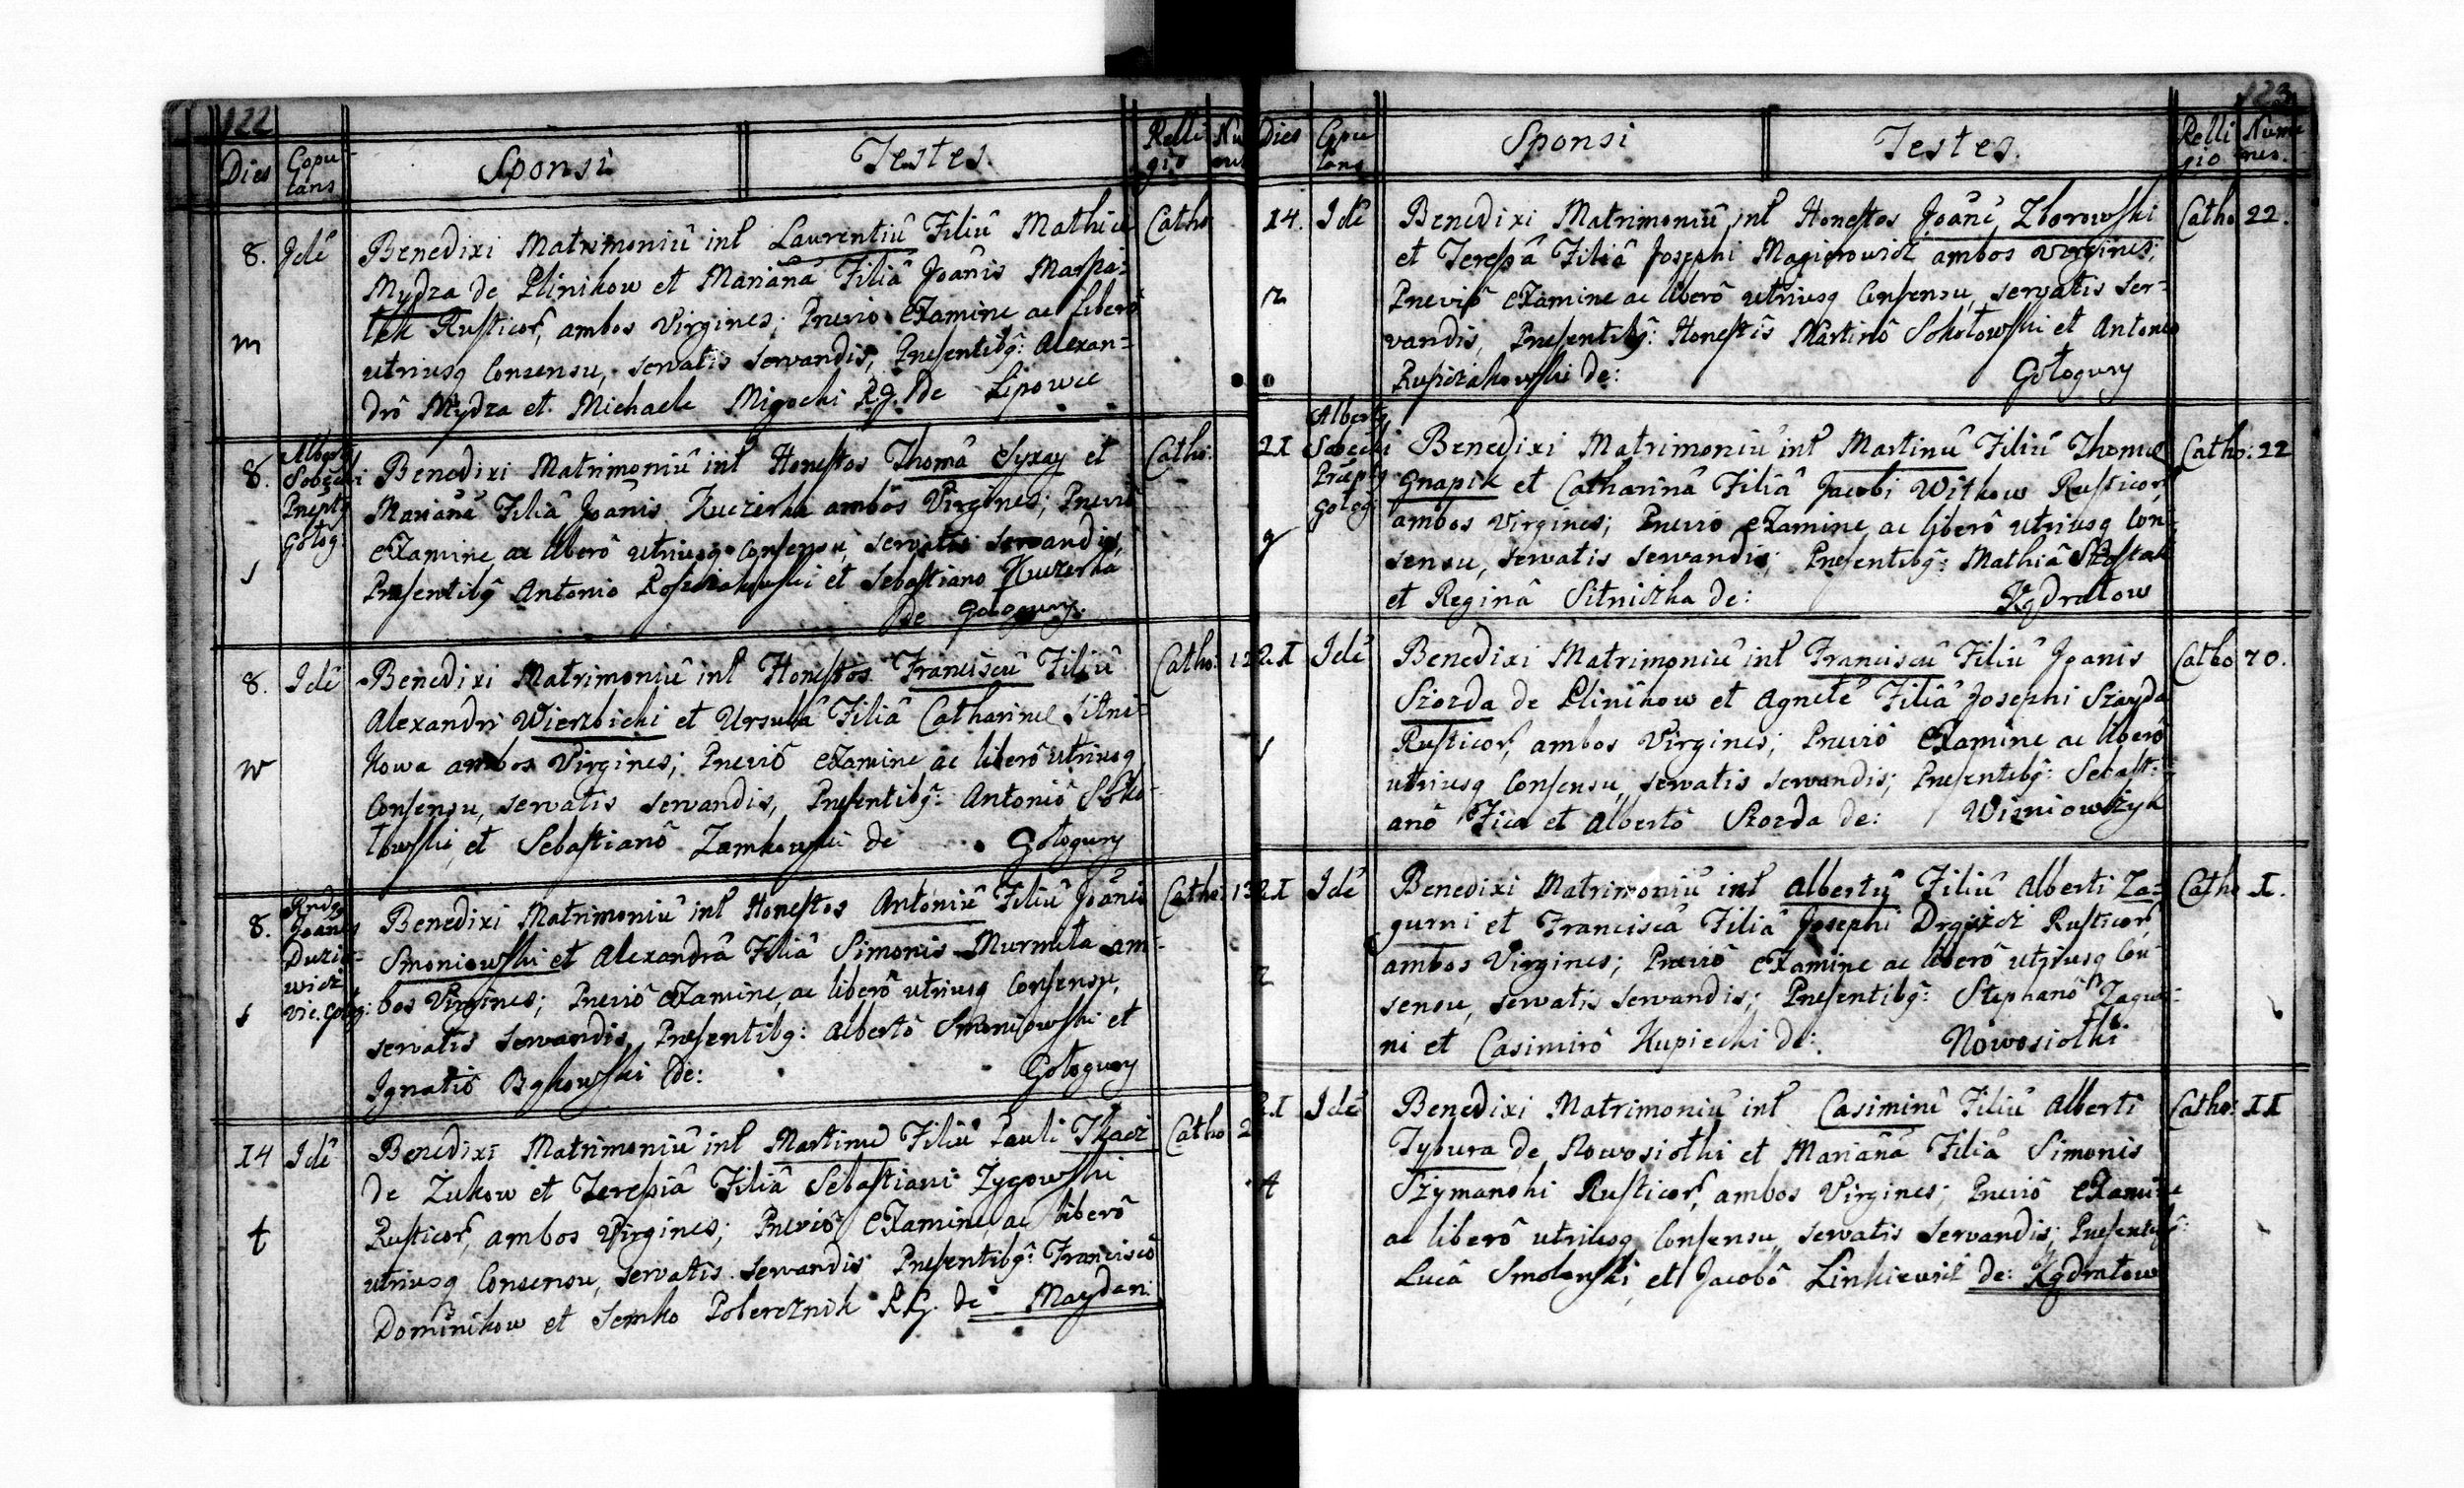 122
Dies Copu-lans Sponsi Testes. Relli-gio Nu
8. Idẽ Benedixi Matrimoniũ int Laurentiũ Filiũ Mathiæ Catho
Mydza de Plinikow et Marianã Filiã Joãnis Maspa=
m tek Rusticor, ambos Virgines; Prævio eXamine ac liberô
utriusq Consensu, servatis servandis, Præsentibq: Alexan=
drô Mydza et Michaele Migocki R.g. de Lipowce
8. Albertq Sobecki Præpts Gołog: Benedixi Matrimoniũ int Honestos Thomã Syxay et Catho:
Marianã Filiã Joãnis Kuczerka ambos Virgines; Præviô
eXamine ac liberô utriusq Consensu, servatis servandis,
s Præsentibq Antonio et Sebastiano Kuczerka
de Gołogury.
8. Idẽ Benedixi Matrimoniũ int Honestos Franciscũ Filiũ Catho: 12
Alexandri Wierzbicki et Ursulã Filiã Catharinæ Sitni=
w kowa ambos Virgines; Præviô eXamine ac liberô utriusq
Consensu, servatis servandis, Præsentibq: Antoniô Soko=
łowski, et Sebastianô Zamkowski de Gołogury
8. Rndq Joanes Vic. Gołog: Benedixi Matrimoniũ int Honestos Antoniũ Filiũ Joãnis Catho: 13
Smoniowski et Alexandrã Filiã Simonis Murmiła am=
s bos Virgines; Præviô eXamine, ac liberô utriusq Consensu,
servatis servandis, Præsentibq: Albertô Smoniowski et
Ignatiô Bykowski de: Gołogury
14 Idẽ Benedixi Matrimoniũ int Martinũ Filiũ Pauli Tkacz Catho 2
de Zukow et Teresiã Filiã Sebastiani Zygowski
t Rusticor, ambos Virgines; Præviô eXamine, ac liberô
utriusq Consensu, servatis servandis Præsentibq: Franciscô
Dominikow et Semko Pobereznik R.G. de Maydan:
123
Dies Copu lans Sponsi Testes. Relli gio Nume rus.
14. Idẽ Benedixi Matrimoniũ int Honestos Joãnẽ Zborowski Catho 22.
et Teresiã Filiã Josephi Magierowicz ambos Virgines;
z Præviô eXamine ac liberô utriusq Consensu, servatis ser=
vandis, Præsentibq: Honestis Martinô Sokołowski et Antonio
de: Gołogury
21 Albertq Sobecki Præpts Gołog Benedixi Matrimoniũ int Martinũ Filiũ Thomæ Catho: 22
Gnapik et Catharinã Filiã Jacobi Witkow Rusticor,
ambos Virgines; Prævio eXamine ac liberô utriusq Con=
g sensu, servatis servandis; Præsentibq: Mathiã
et Reginâ Sitniczka de: Kądratow
21 Idẽ Benedixi Matrimoniũ int Franciscũ Filiũ Joanis Catho 70.
Szozda de Plinikow et Agnetẽ Filiã Josephi Szayda
s Rusticor, ambos Virgines; Præviô eXamine ac liberô
utriusq Consensu, servatis servandis; Præsentibq: Sebasti=
anô Fica et Albertô Szozda de: Wisniowczyk
21 Idẽ Benedixi Matrimoniũ int Albertũ Filiũ Alberti Za= Catho I.
gurni et Franciscã Filiã Josephi Rusticor,
z ambos Virgines; Præviô eXamine ac liberô utriusq Con
sensu, servatis servandis; Præsentibq: Stephanô Zagur=
ni et Casimirô Kupiecki de: Nowosiołki
21 Idẽ Benedixi Matrimoniũ int Casimirũ Filiũ Alberti Catho: II
Tybura de Nowosiołki et Marianã Filiã Simonis
t Szymanski Rusticor, ambos Virgines; Præviô eXamine
ac liberô utriusq Consensu, servatis servandis; Præsentibq:
Lucâ Smolenski, et Jacobô Linkiewicz de: Kądratow